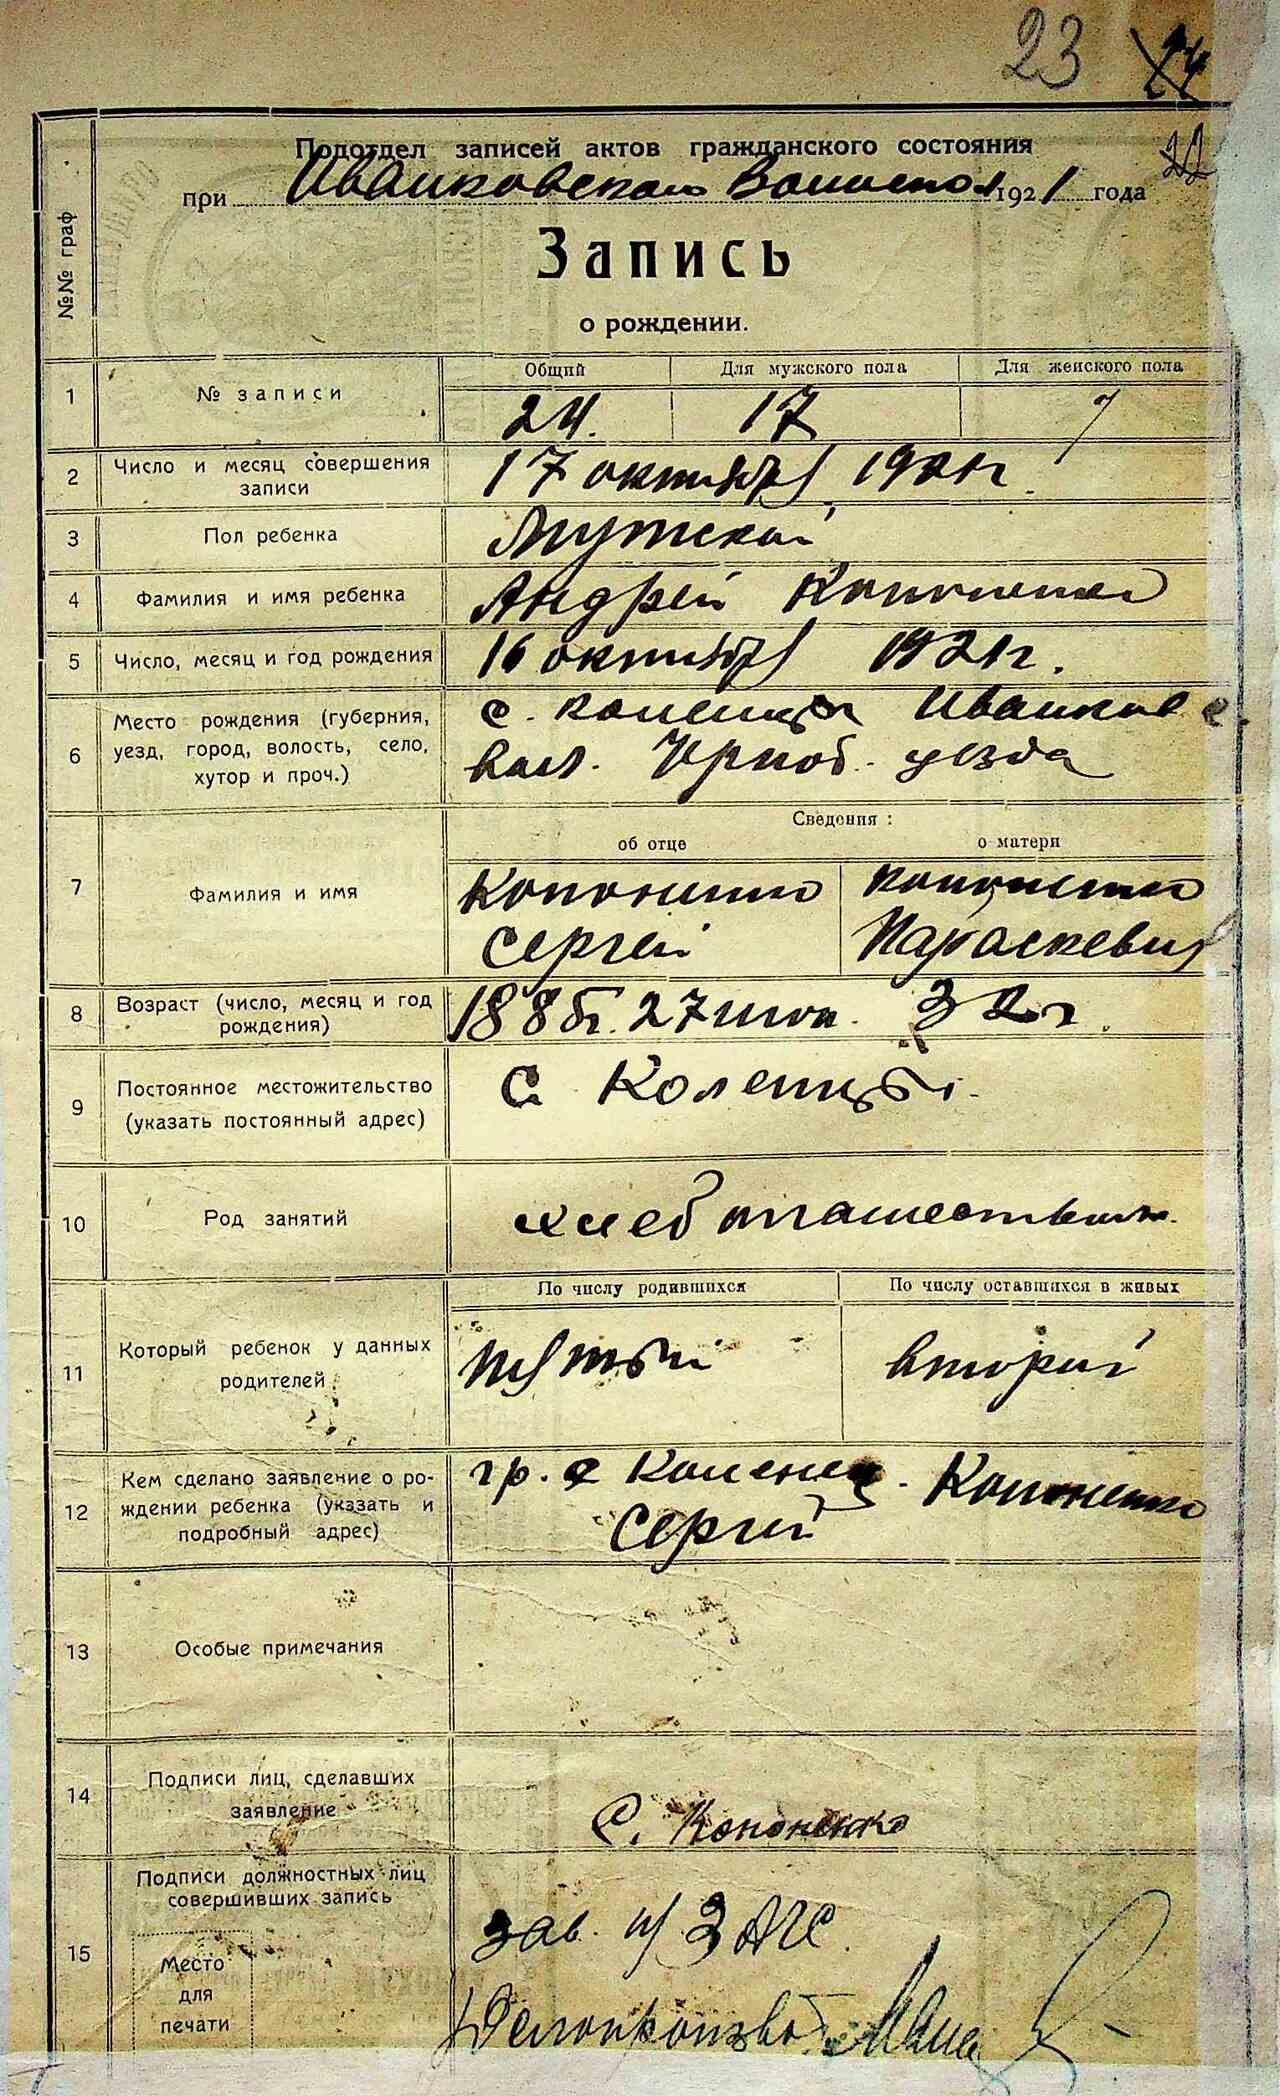 23 24
22
Подотдел записей актов гражданского состояния
при Иванковском 1921 года
№№ граф
Запись
о рождении.
Общий Для мужского пола Для женского пола
1 № записи 24. 17
2 Число и месяц совершения записи 17 октября 1921 г.
3 Пол ребенка Мужской
4 Фамилия и имя ребенка Андрей Кононенко
5 Число, месяц и год рождения 16 октября 1921 г.
6 Место рождения (губерния, уезд, город, волость, село, хутор и проч.) с. Коленцы Иванков
вол. Черноб. уезда
Сведения:
об отце о матери
7 Фамилия и имя Кононенко Кононенко
Сергей Параскевия
8 Возраст (число, месяц и год рождения) 27 32 г.
9 Постоянное местожительство (указать постоянный адрес) с. Коленцы.
10 Род занятий хлебопашество
По числу родившихся По числу оставшихся в живых
11 Который ребенок у данных родителей пятый второй
12 Кем сделано заявление о рождении ребенка (указать и подробный адрес) гр. с Коленец. Кононенко
Сергей
13 Особые примечания
14 Подписи лиц, сделавших заявление С. Кононенко
15 Подписи должностных лиц совершивших запись зав. п/ ЗАГС.
Место
для
печати
Делопроизвод.